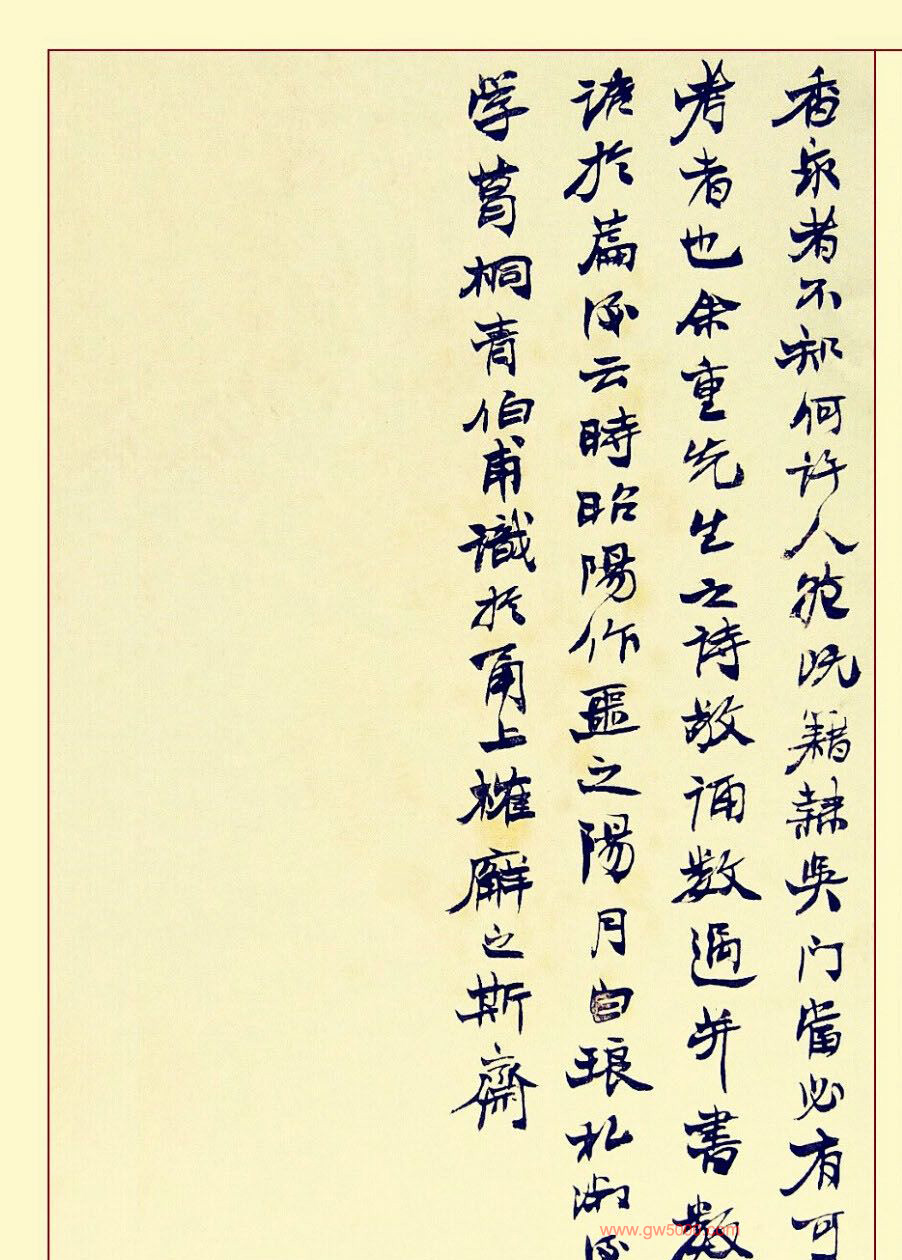 香泉者不知何许人然既籍隸吳门當必有可
考者也余重先生之詩敬诵数過并書数
於篇後云時昭陽作噩之陽月白琅札淑後
学葛桐青伯甫識於甬上榷廨之斯齋
www.gw5000.com